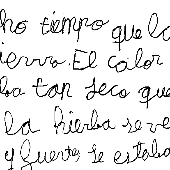 ho tiempo que la
ierra. El calor
ba tan seco que
la hierba se ve
y fuerte, se estaba